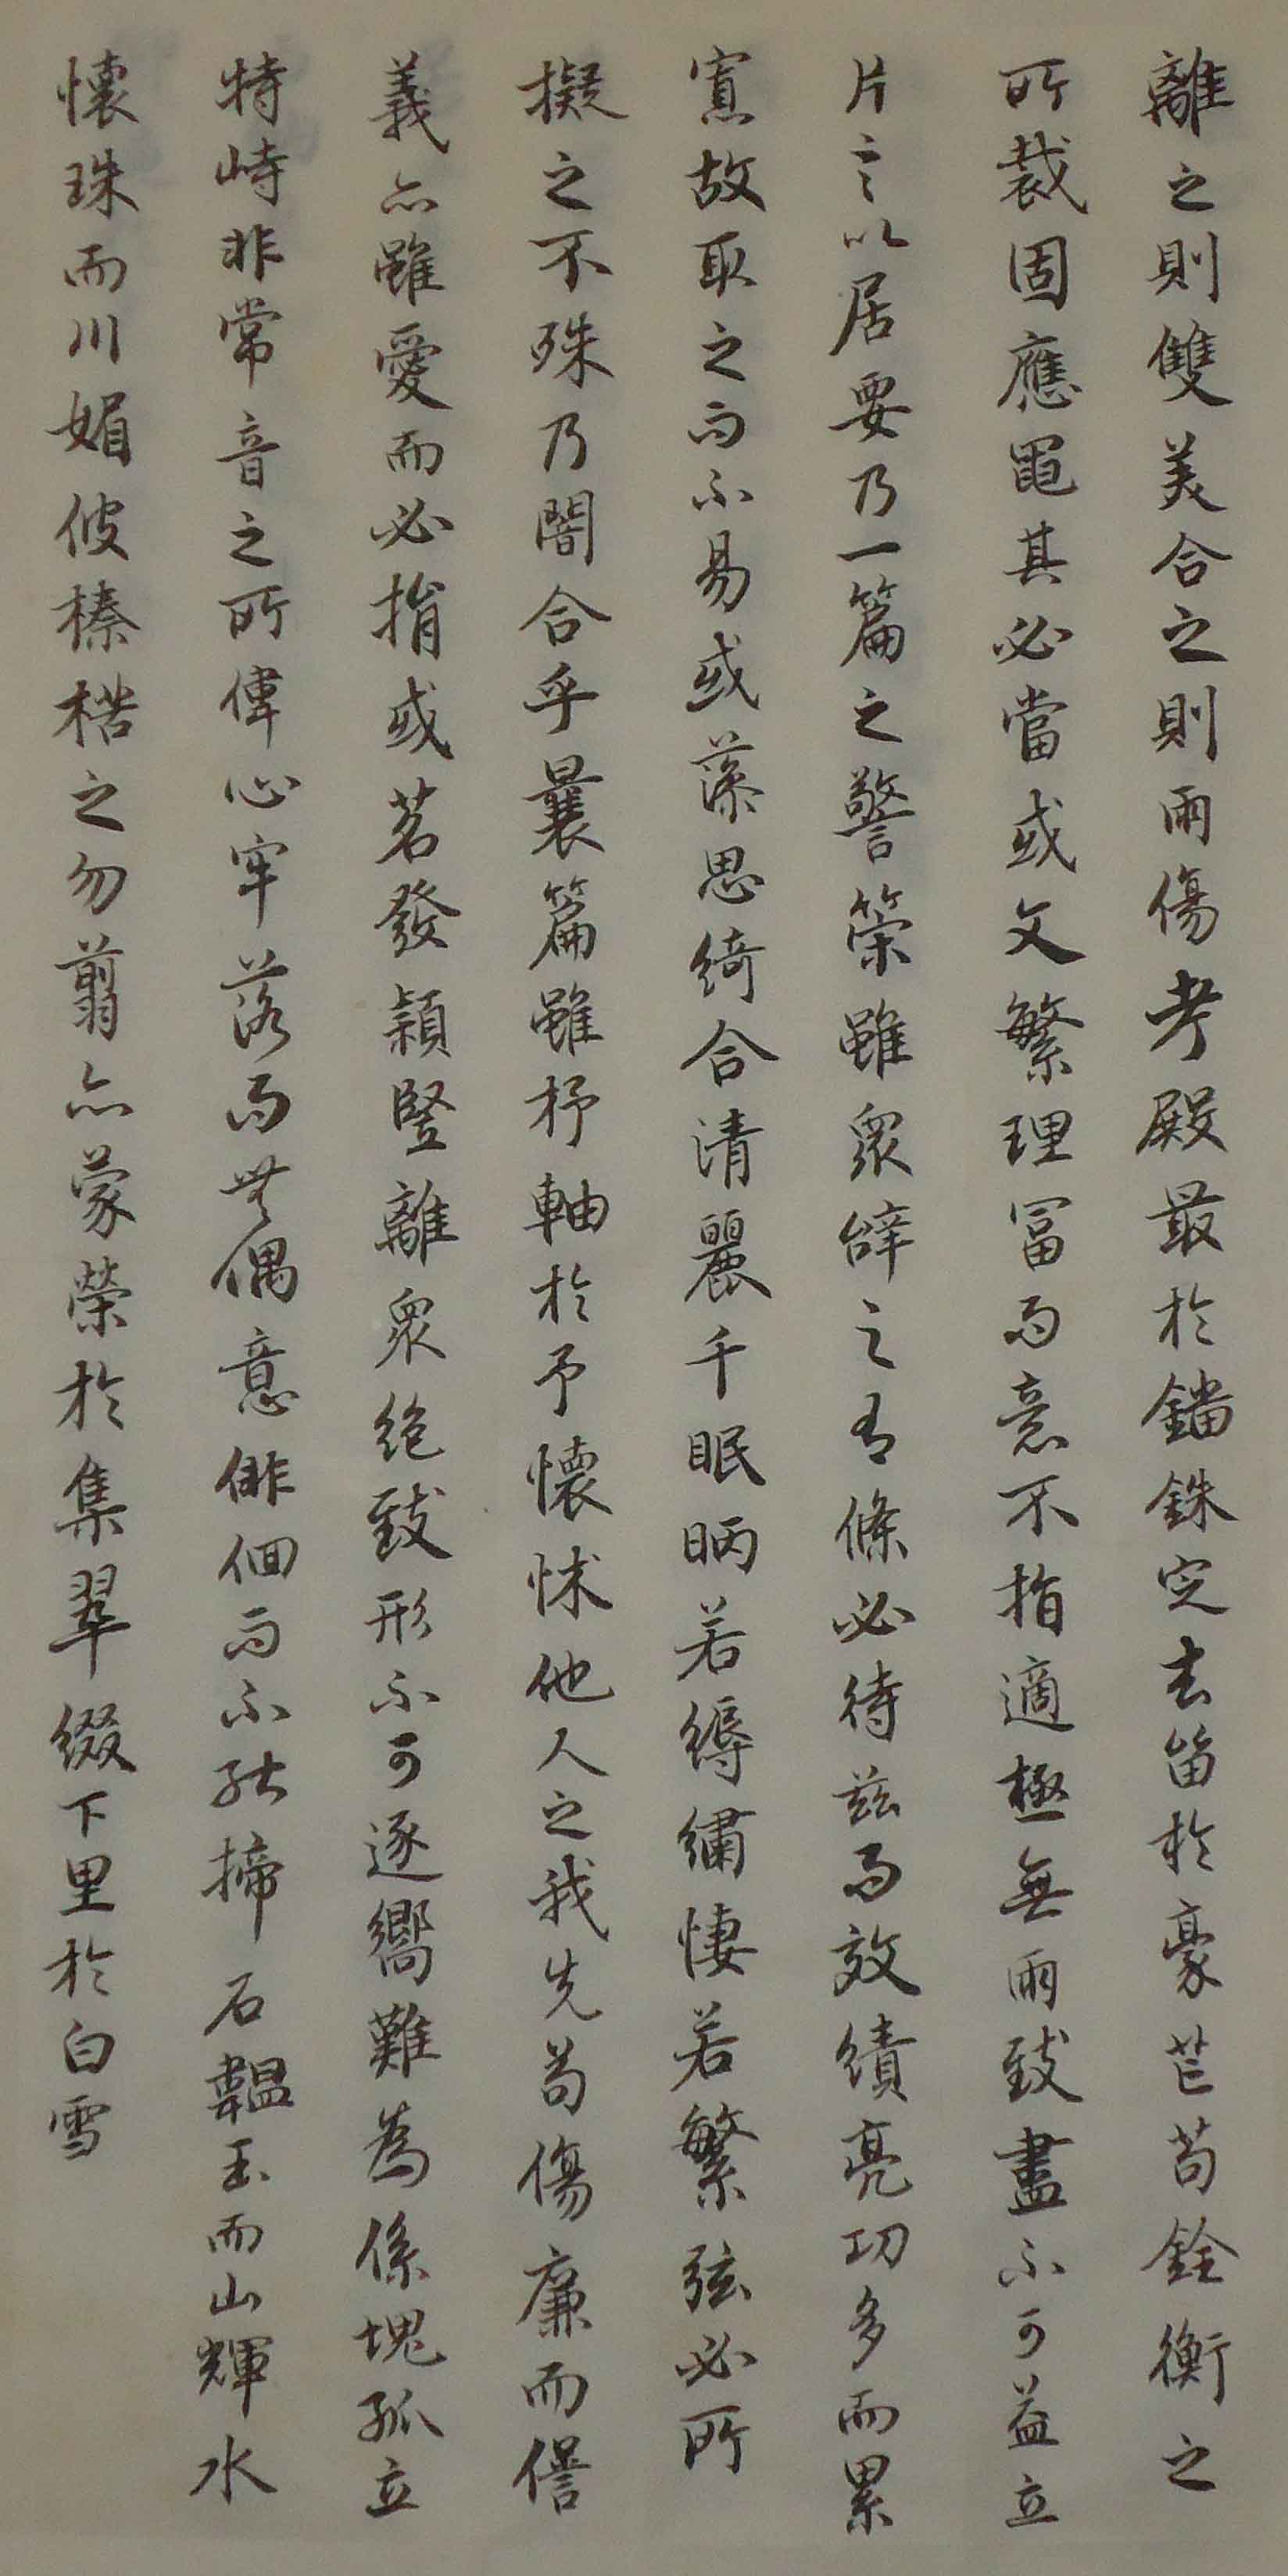 離之則雙美合之則兩傷考殿最於錙銖定去留於豪芒苟銓衡之
所裁固應繩其必當或文繁理冨而意不指適極無兩致盡不可益立
片言以居要乃一篇之警策雖衆辭之有條必待茲而效績亮功多而累
寡故取之而不易或藻思綺合清麗千眠昞若縟繡悽若繁弦必所
擬之不殊乃闇合乎曩篇雖杼軸於予懷怵他人之我先苟傷廉而愆
義亦雖愛而必捐或苕發穎豎離衆絶致形不可逐嚮難為係塊孤立
特峙非常音之所偉心牢落而無偶意俳佪而不能揥石韞玉而山輝水
懷珠而川媚彼榛楛之勿翦亦蒙榮於集翠綴下里於白雪